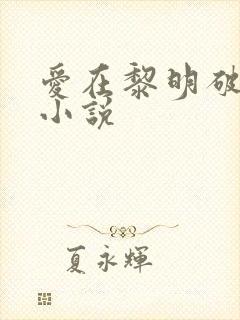 愛在黎明破
小說
夏永輝